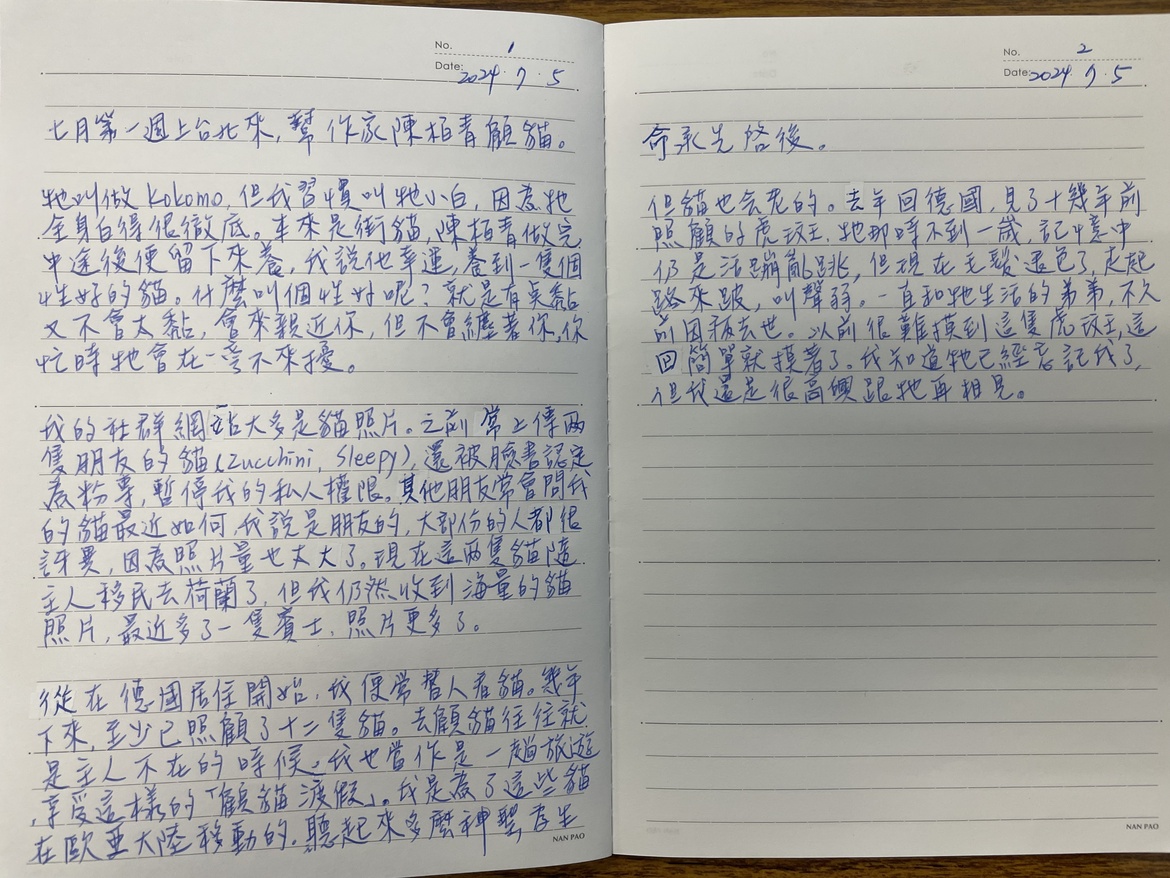 No. 1
Date: 2024. 7. 5
七月第一週上台北來，幫作家陳栢青顧貓。
牠叫做Kokomo，但我習慣叫牠小白，因為牠
全身白得很徹底。本來是街貓，陳栢青做完
中途後便留下來養，我說他幸運，養到一隻個
性好的貓。什麼叫個性好呢？就是有點黏
又不會太黏，會來親近你，但不會纏著你，你
忙時牠會在一旁不來擾。
我的社群網站大多是貓照片。之前常上傳兩
隻朋友的貓(Zucchini, Sleepy)，還被臉書認定
為粉專，暫停我的私人權限。其他朋友常會問我
的貓最近如何，我說是朋友的，大部份的人都很
訝異，因為照片量也太大了。現在這兩隻貓隨
主人移民去荷蘭了，但我仍然收到海量的貓
照片，最近多了一隻賓士，照片更多了。
從在德國居住開始，我便常替人看貓。幾年
下來，至少已照顧了十二隻貓。去顧貓往往就
是主人不在的時候，我也當作是一趟旅遊
，享受這樣的「顧貓渡假」。我是為了這些貓
在歐亞大陸移動的，聽起來多麼神聖，孝生
NAN PAO
No. 2
Date: 2024. 7. 5
命承先啓後。
但貓也會老的。去年回德國，見了十幾年前
照顧的虎斑王，牠那時不到一歲，記憶中
仍是活蹦亂跳，但現在毛髮退色了，走起
路來跛，叫聲弱。一直和牠生活的弟弟，不久
前因病去世。以前很難摸到這隻虎斑王，這
回簡單就摸著了。我知道牠已經忘記我了，
但我還是很高興跟牠再相見。
NAN PAO